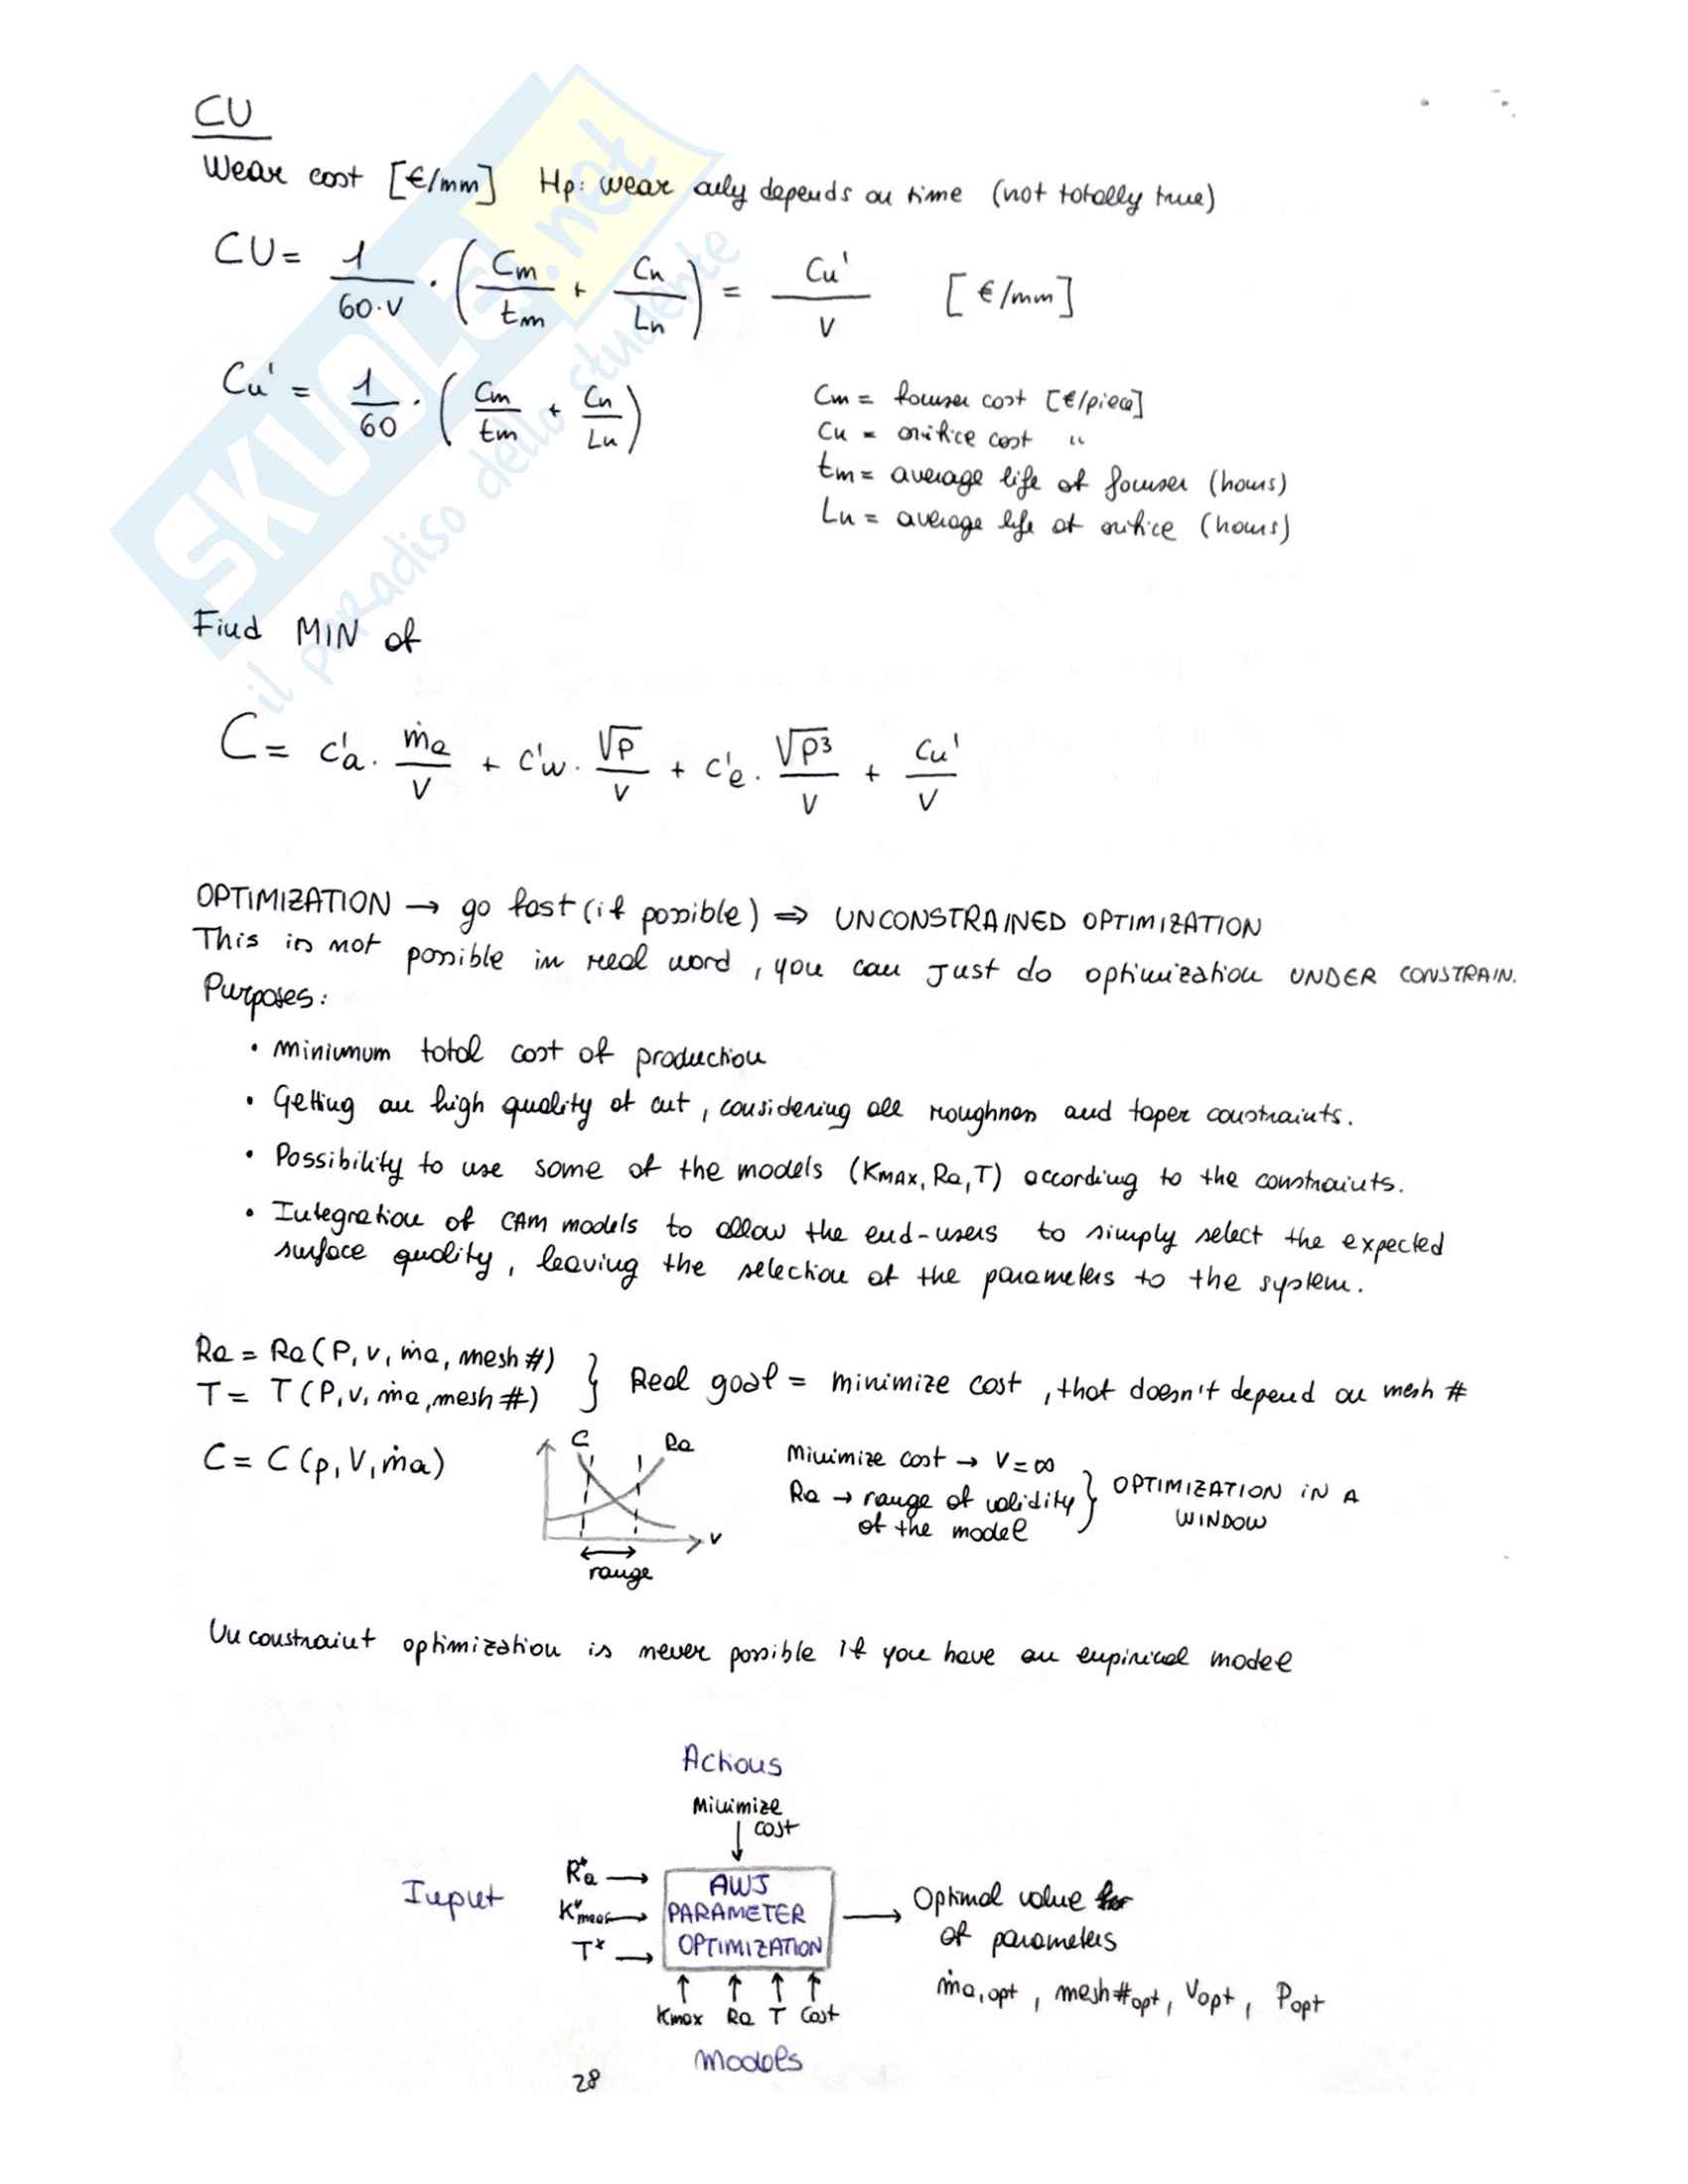 CU
Wear cost [€/mm] Hp: wear only depends on time (not totally true)
CU = 1/(60·V) · (Cm/tm + Cn/Ln) = Cu'/V [€/mm]
Cu' = 1/60 · (Cm/tm + Cn/Ln)
Cm = focuser cost [€/piece]
Cn = orifice cost "
tm = average life of focuser (hours)
Ln = average life of orifice (hours)
Find MIN of
C = c'a · ṁa/V + c'w · √P/V + c'e · √P³/V + Cu'/V
OPTIMIZATION → go fast (if possible) ⇒ UNCONSTRAINED OPTIMIZATION
This is not possible in real word, you can just do optimization UNDER CONSTRAIN.
Purposes:
• minimum total cost of production
• Getting an high quality of cut, considering all roughness and taper constraints.
• Possibility to use some of the models (KMAX, Ra, T) according to the constraints.
• Integration of CAM models to allow the end-users to simply select the expected
surface quality, leaving the selection of the parameters to the system.
Ra = Ra (P, v, ṁa, mesh #)
T = T (P, v, ṁa, mesh #) } Real goal = minimize cost, that doesn't depend on mesh #
C = C (p, V, ṁa)
C Ra
v
range
Minimize cost → V = ∞
Ra → range of validity
of the model } OPTIMIZATION IN A
WINDOW
Unconstraint optimization is never possible if you have an empirical model
Actions
Minimize
cost
Input
Ra*
K*meas
T*
AWJ
PARAMETER
OPTIMIZATION
Optimal value
of parameters
ṁa,opt, mesh#opt, Vopt, Popt
Kmax Ra T Cost
Models
28
SKUOLA.net
il paradiso dello studente